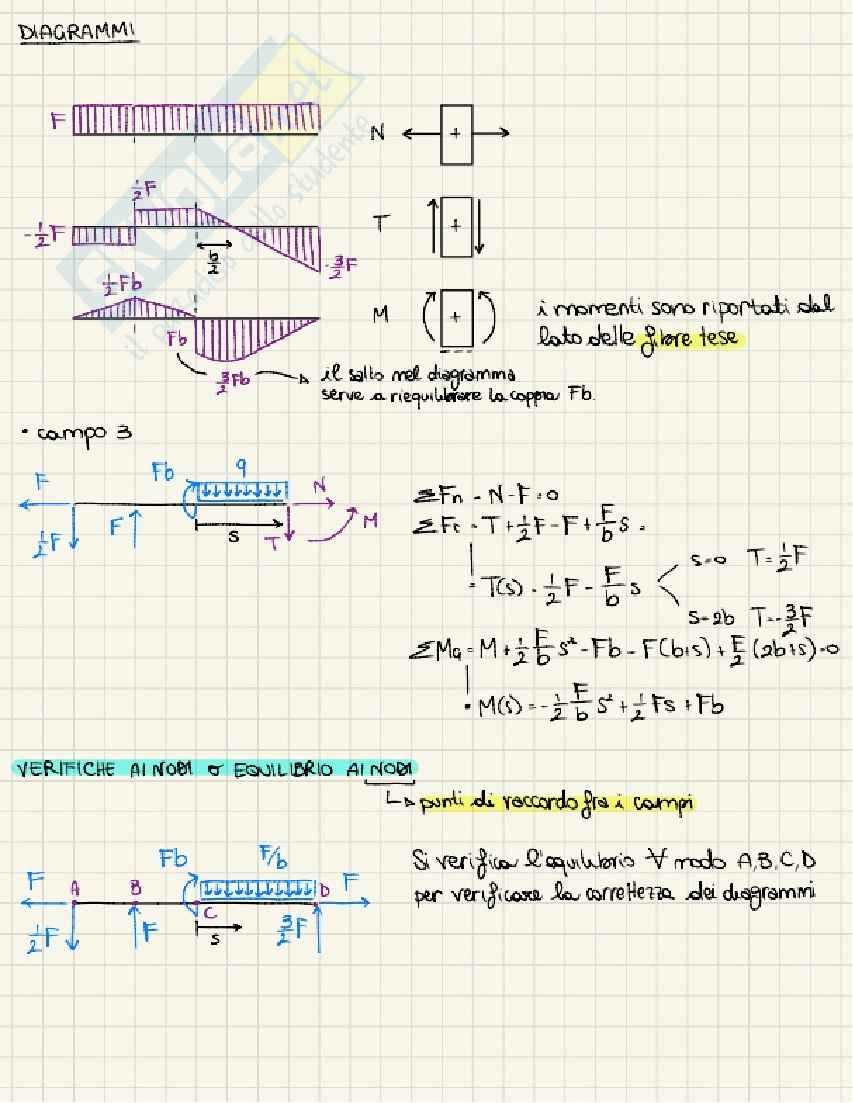 DIAGRAMMI
F
N
+
½F
-½F
b/2
-3/2F
T
+
½Fb
Fb
3/2Fb
M
+
i momenti sono riportati dal
lato delle fibre tese
il salto nel diagramma
serve a riequilibrare la coppia Fb.
• campo 3
F
½F
F
Fb
q
s
N
T
M
ΣFn = N-F=0
ΣFt = T+½F-F+F/b s =
= T(s) = ½F - F/b s
s=0 T=½F
s=2b T=-3/2F
ΣMa = M+½ F/b s² - Fb - F(b+s) + F/2 (2b+s)=0
• M(s) = -½ F/b s² + ½ Fs + Fb
VERIFICHE AI NODI o EQUILIBRIO AI NODI
punti di raccordo fra i campi
Fb
F/b
F
A
B
C
D
F
½F
F
s
3/2F
Si verifica l'equilibrio ∀ nodo A,B,C,D
per verificare la correttezza dei diagrammi